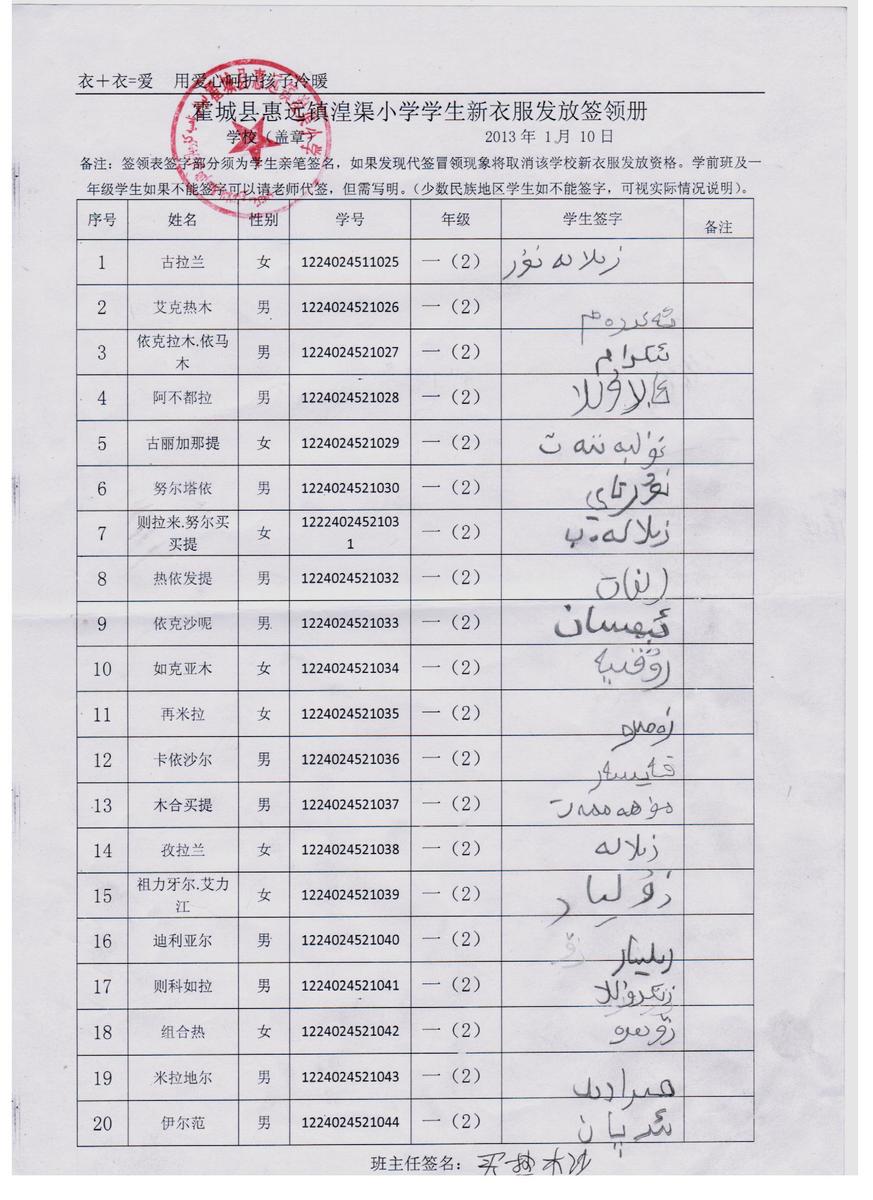 衣＋衣=爱　用爱心呵护孩子冷暖
霍城县惠远镇湟渠小学学生新衣服发放签领册
学校（盖章） 2013 年 1 月 10 日
备注：签领表签字部分须为学生亲笔签名，如果发现代签冒领现象将取消该学校新衣服发放资格。学前班及一
年级学生如果不能签字可以请老师代签，但需写明。（少数民族地区学生如不能签字，可视实际情况说明）。
序号 姓名 性别 学号 年级 学生签字 备注
1 古拉兰 女 1224024511025 一（2） زىلالە نۇر
2 艾克热木 男 1224024521026 一（2）
3 依克拉木.依马木 男 1224024521027 一（2） ئىكرام
4 阿不都拉 男 1224024521028 一（2）
5 古丽加那提 女 1224024521029 一（2）
6 努尔塔依 男 1224024521030 一（2） نۇرتاي
7 则拉来.努尔买买提 女 12224024521031 一（2）
8 热依发提 男 1224024521032 一（2）
9 依克沙呢 男 1224024521033 一（2） ئېھسان
10 如克亚木 女 1224024521034 一（2） رۇقىيە
11 再米拉 女 1224024521035 一（2）
12 卡依沙尔 男 1224024521036 一（2） قەيسەر
13 木合买提 男 1224024521037 一（2） مۇھەممەت
14 孜拉兰 女 1224024521038 一（2） زىلالە
15 祖力牙尔.艾力江 女 1224024521039 一（2） زۇلپيار
16 迪利亚尔 男 1224024521040 一（2）
17 则科如拉 男 1224024521041 一（2） زىكرۇللا
18 组合热 女 1224024521042 一（2）
19 米拉地尔 男 1224024521043 一（2）
20 伊尔范 男 1224024521044 一（2）
班主任签名：